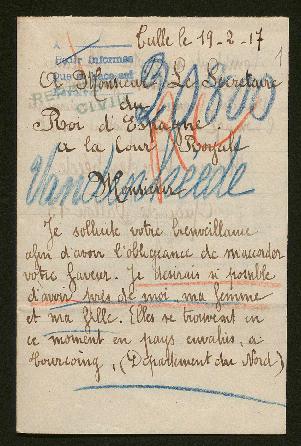 Tulle le 19-2-17
1
Pour informes
A Monsieur Le Secretaire
du
Roi d'Espagne
a la Cour Royale
Monsieur
Je sollicite votre bienveillance
afin d'avoir l'obligeance de m'accorder
votre faveur. Je desirais si possible
d'avoir près de moi ma femme
et ma fille. Elles se trouvent en
ce moment en pays envahis, a
Tourcoing, (Departement du Nord)